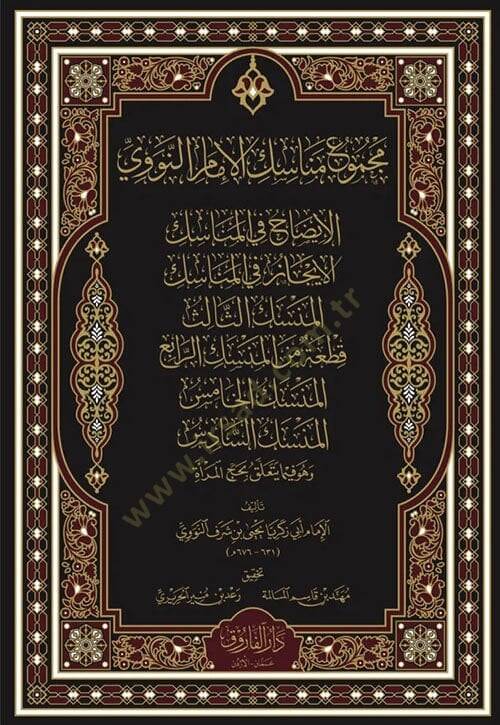 مَجْمُوعُ مَنَاسِكِ الإِمَامِ النَّوَوِيِّ
الإيضَاحُ فِي المَنَاسِكِ
الإيجَازُ فِي المَنَاسِكِ
المَنْسَكُ الثَّالِثُ
قِطْعَةٌ مِنَ المَنْسَكِ الرَّابِعِ
المَنْسَكُ الخَامِسُ
المَنْسَكُ السَّادِسُ
وَهُوَ فِيمَا يَتَعَلَّقُ بِحَجِّ المَرْأَةِ
تأليف
الإمام أبي زكريا يحيى بن شرف النووي
(٦٣١ - ٦٧٦ه)
تحقيق
مهند بن قاسم المسالمة رعد بن منير الحريري
دار الفاروق
عمان - الأردن